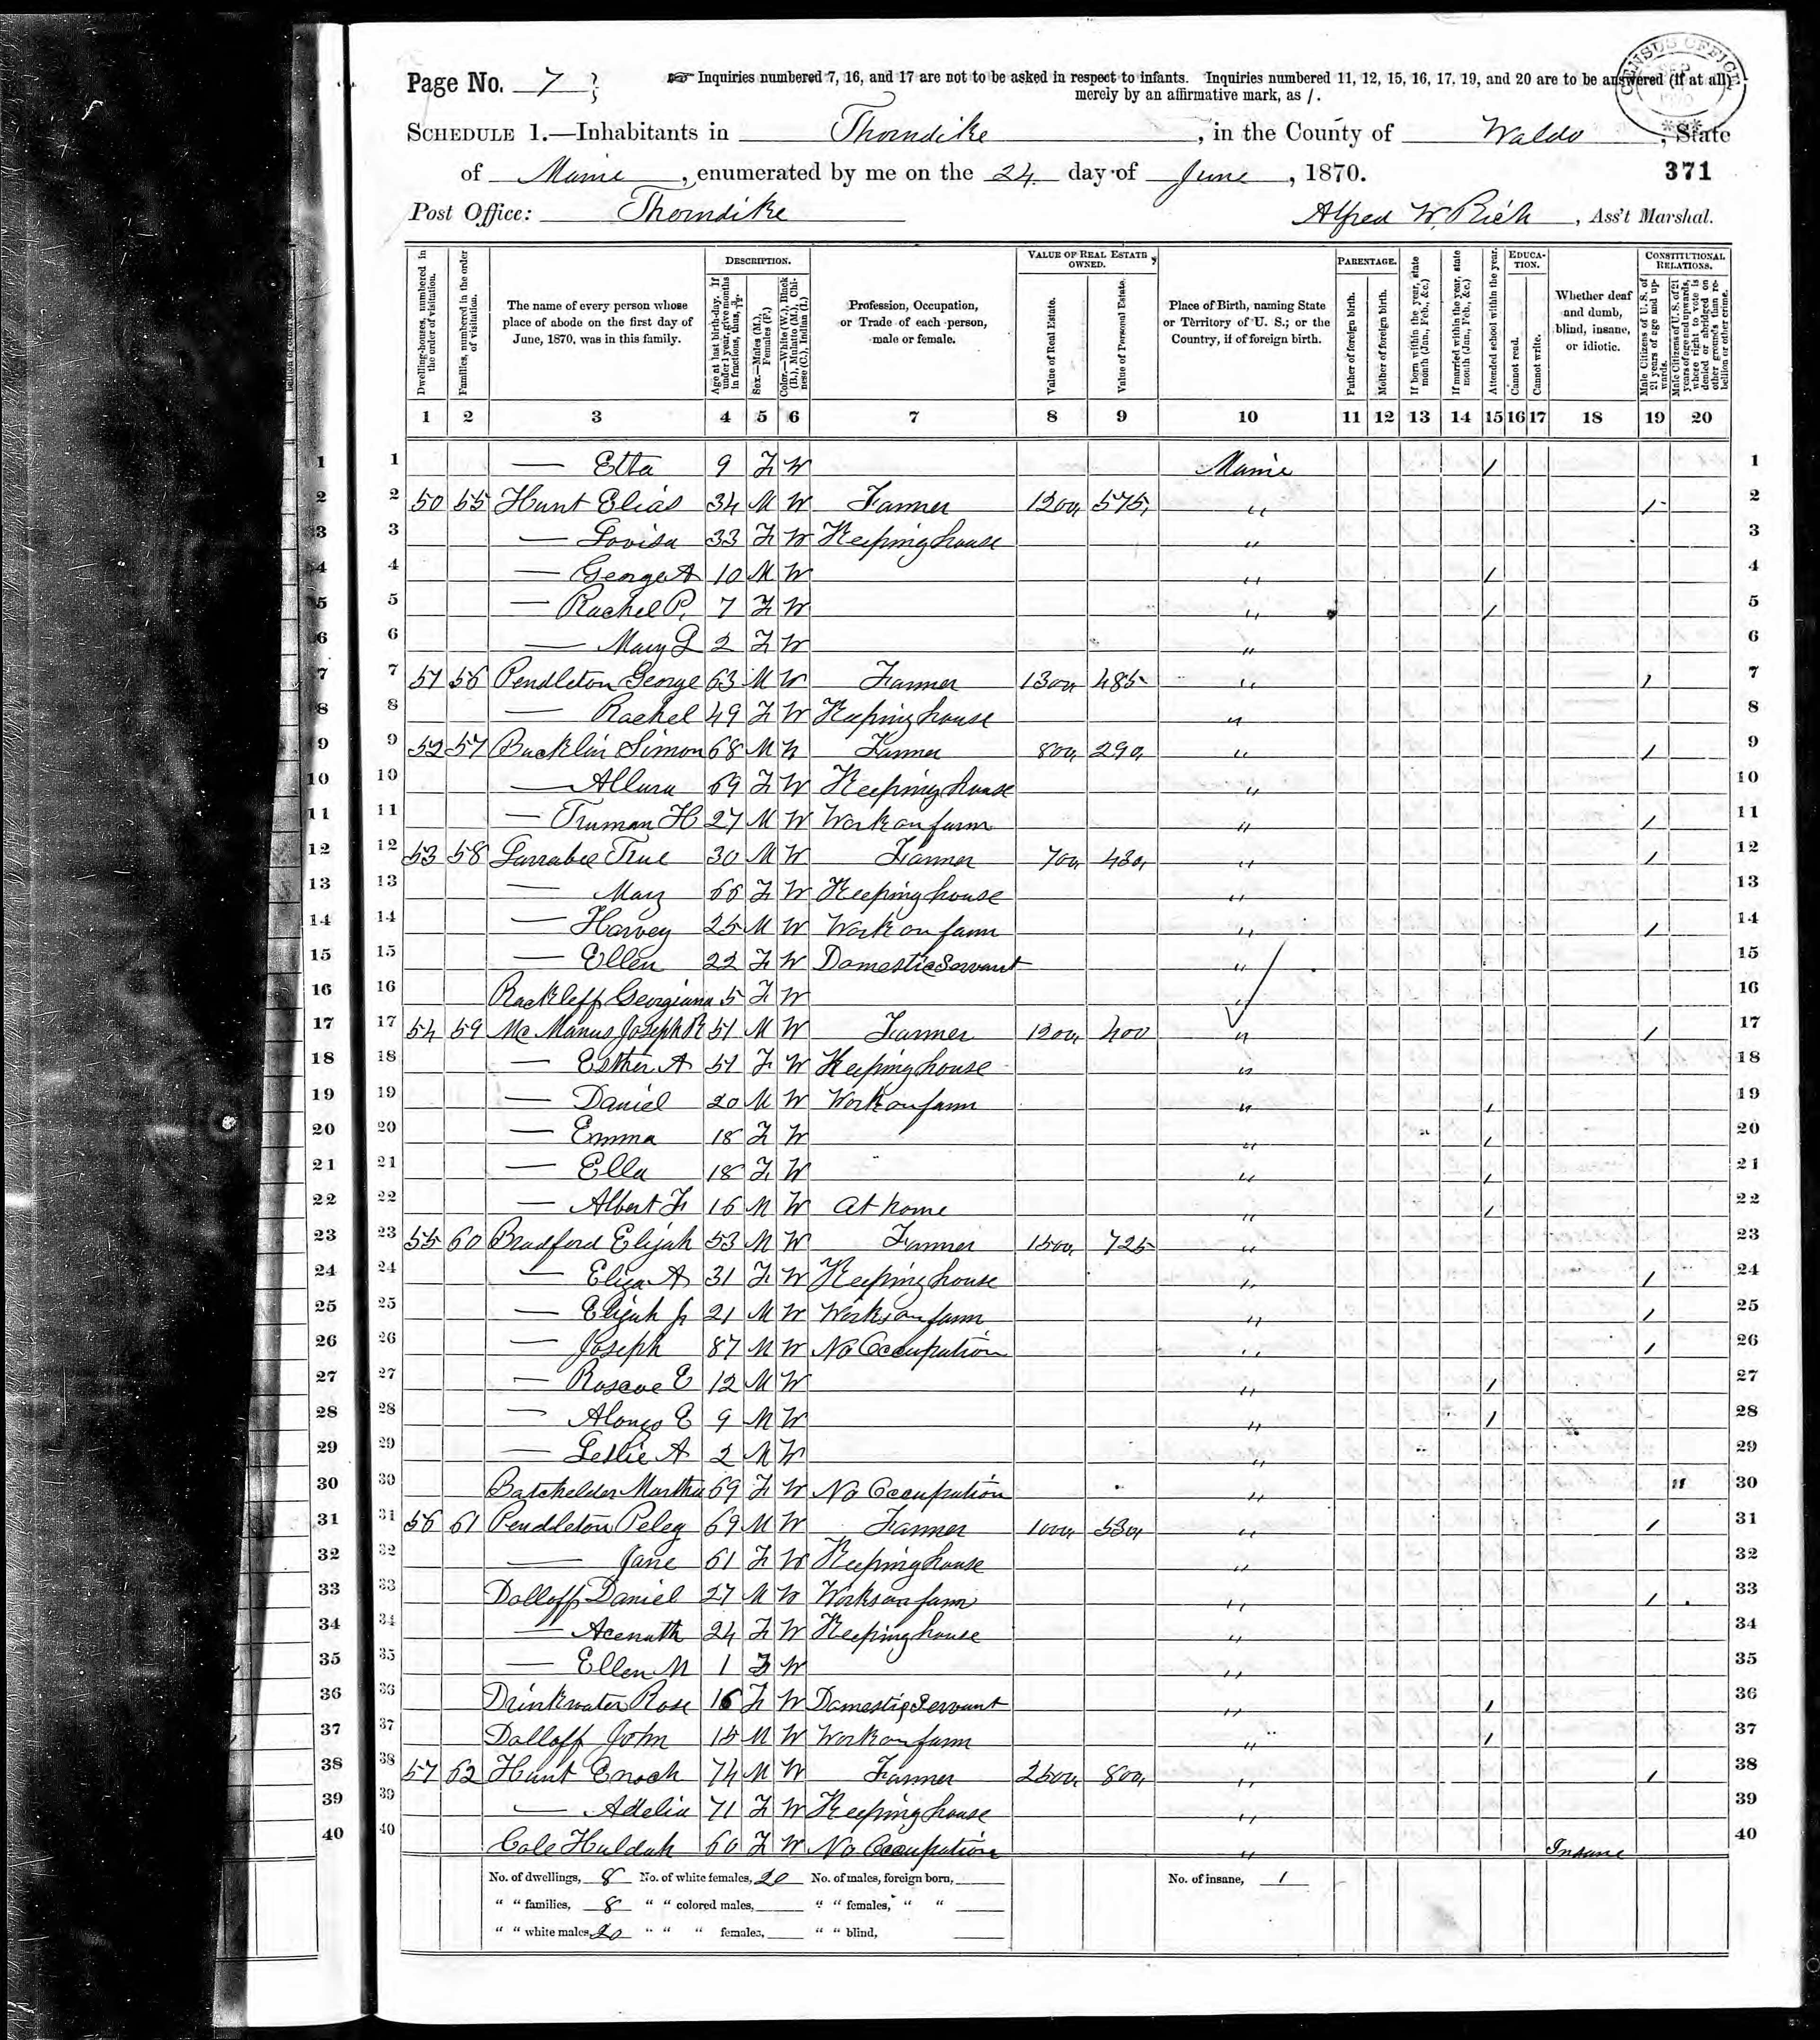 Page No. 7
Inquiries numbered 7, 16, and 17 are not to be asked in respect to infants. Inquiries numbered 11, 12, 15, 16, 17, 19, and 20 are to be answered (if at all)
merely by an affirmative mark, as /.
CENSUS OFFICE
SCHEDULE 1.—Inhabitants in Thorndike, in the County of Waldo, State
of Maine, enumerated by me on the 24 day of June, 1870.
371
Post Office: Thorndike
Alfred W. Rich, Ass't Marshal.
Dwelling-houses, numbered in the order of visitation.
Families, numbered in the order of visitation.
The name of every person whose place of abode on the first day of June, 1870, was in this family.
DESCRIPTION.
Age at last birth-day. If under 1 year, give months in fractions, thus, 3/12.
Sex.—Males (M.), Females (F.)
Color.—White (W.), Black (B.), Mulatto (M.), Chinese (C.), Indian (I.)
Profession, Occupation, or Trade of each person, male or female.
VALUE OF REAL ESTATE OWNED.
Value of Real Estate.
Value of Personal Estate.
Place of Birth, naming State or Territory of U. S.; or the Country, if of foreign birth.
PARENTAGE.
Father of foreign birth.
Mother of foreign birth.
If born within the year, state month (Jan., Feb., &c.)
If married within the year, state month (Jan., Feb., &c.)
Attended school within the year.
EDUCATION.
Cannot read.
Cannot write.
Whether deaf and dumb, blind, insane, or idiotic.
CONSTITUTIONAL RELATIONS.
Male Citizens of U. S. of 21 years of age and upwards.
Male Citizens of U. S. of 21 years of age and upwards, where right to vote is denied or abridged on other grounds than rebellion or other crime.
1 2 3 4 5 6 7 8 9 10 11 12 13 14 15 16 17 18 19 20
1 — Etta 9 F W Maine / 1
2 50 55 Hunt Elias 34 M W Farmer 1200 575 " / 2
3 — Lovisa 33 F W Keeping house " 3
4 — George A 10 M W " / 4
5 — Rachel P. 7 F W " / 5
6 — Mary L 2 F W " 6
7 51 56 Pendleton George 63 M W Farmer 1300 485 " / 7
8 — Rachel 49 F W Keeping house " 8
9 52 57 Bucklin Simon 68 M W Farmer 800 290 " / 9
10 — 69 F W Keeping house " 10
11 — Truman H 27 M W Work on farm " / 11
12 53 58 Larrabee True 30 M W Farmer 700 430 " / 12
13 — Mary 66 F W Keeping house " 13
14 — Harvey 25 M W Work on farm " / 14
15 — Ellen 22 F W Domestic Servant " 15
16 Rackleff Georgiana 5 F W " 16
17 54 59 Mc Manus Joseph R 51 M W Farmer 1200 400 " / 17
18 — Esther A 51 F W Keeping house " 18
19 — Daniel 20 M W Work on farm " / 19
20 — Emma 18 F W " / 20
21 — Ella 18 F W " / 21
22 — Albert F 16 M W At home " / 22
23 55 60 Bradford Elijah 53 M W Farmer 1500 725 " 23
24 — Eliza A 31 F W Keeping house " / 24
25 — Elijah Jr 21 M W Works on farm " / 25
26 — Joseph 87 M W No Occupation " / 26
27 — Roscoe E 12 M W " / 27
28 — Alonzo E 9 M W " / 28
29 — Leslie A 2 M W " 29
30 Batchelder Martha 69 F W No Occupation " 30
31 56 61 Pendleton Peleg 69 M W Farmer 1000 530 " / 31
32 — Jane 61 F W Keeping house " 32
33 Dolloff Daniel 27 M W Works on farm " / 33
34 — Acenath 24 F W Keeping house " 34
35 — Ellen M 1 F W " 35
36 Drinkwater Rose 16 F W Domestic Servant " / 36
37 Dolloff John 15 M W Work on farm " / 37
38 57 62 Hunt Enoch 74 M W Farmer 2500 800 " / 38
39 — Adelia 71 F W Keeping house " 39
40 Cole Huldah 60 F W No Occupation " Insane 40
No. of dwellings, 8 No. of white females, 20 No. of males, foreign born, No. of insane, 1
" " families, 8 " " colored males, " " females, " "
" " white males, 20 " " " females, " " blind,